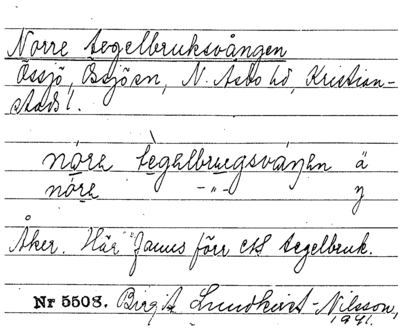 Norre tegelbruksvången
Össjö, Össjöen, N. Åsbo hd, Kristian-
stads l.
nóra tègəlbrugsváŋən ä
nóra -"- y
Åker. Här fanns förr ett tegelbruk.
Nr 5508. Birgit Lundkvist-Nilsson,
1941.